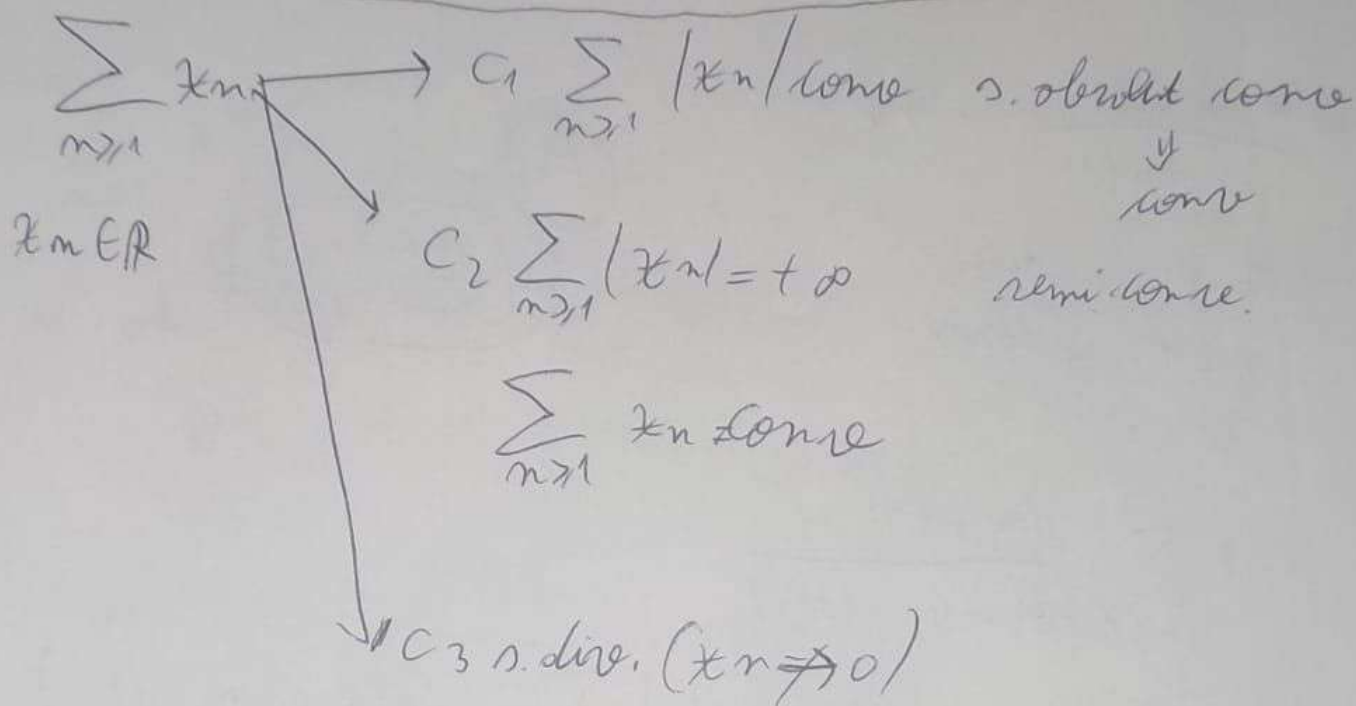 ∑ n≥1 xn → C1 ∑ n≥1 |xn| conv s. absolut conv
⇓
conv
xn ∈ ℝ
C2 ∑ n≥1 |xn| = +∞ semi conv.
∑ n≥1 xn conv
C3 s. div. (xn ↛ 0)